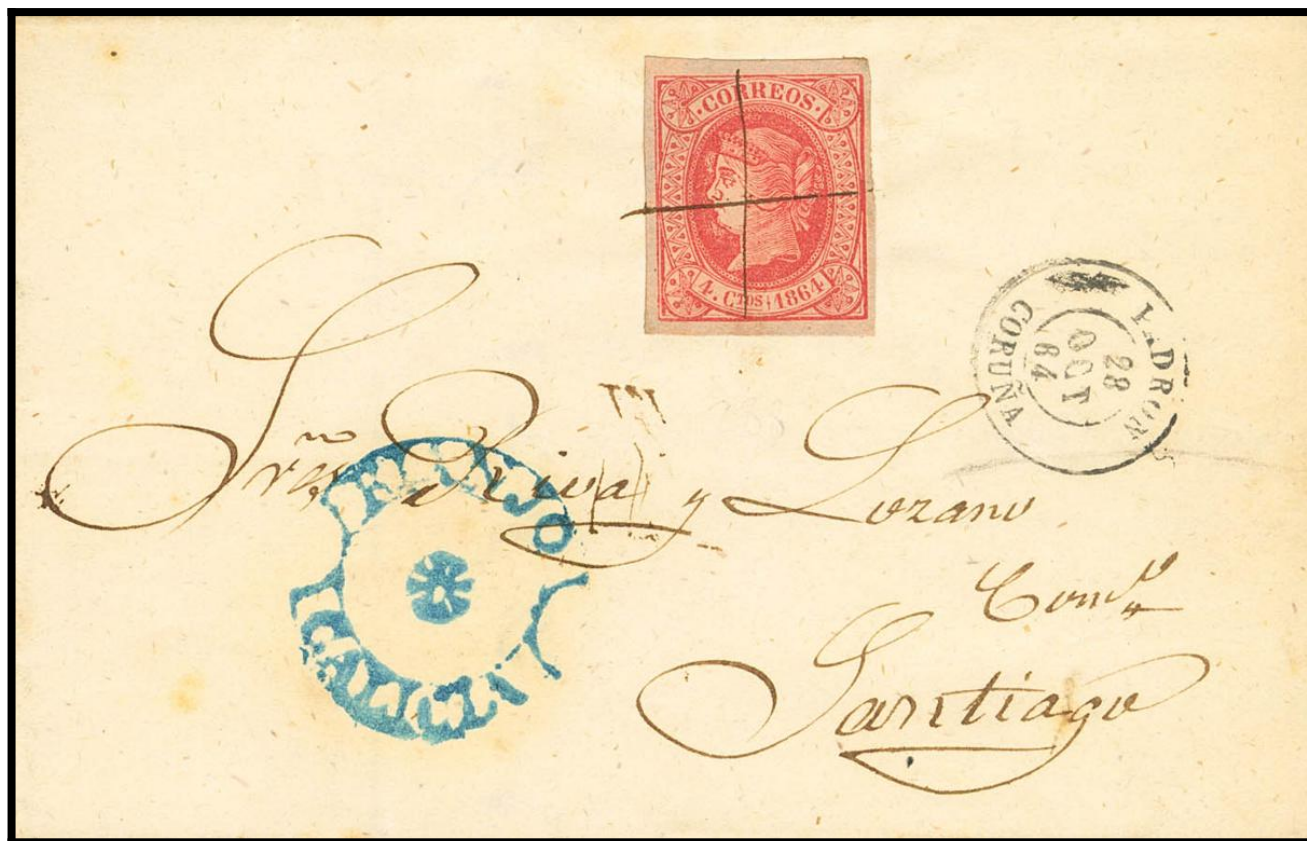 CORREOS
4. Ctos 1864
PADRON
28
OCT
64
CORUÑA
Sres Riva y Lozano
Santiago
GALICIA